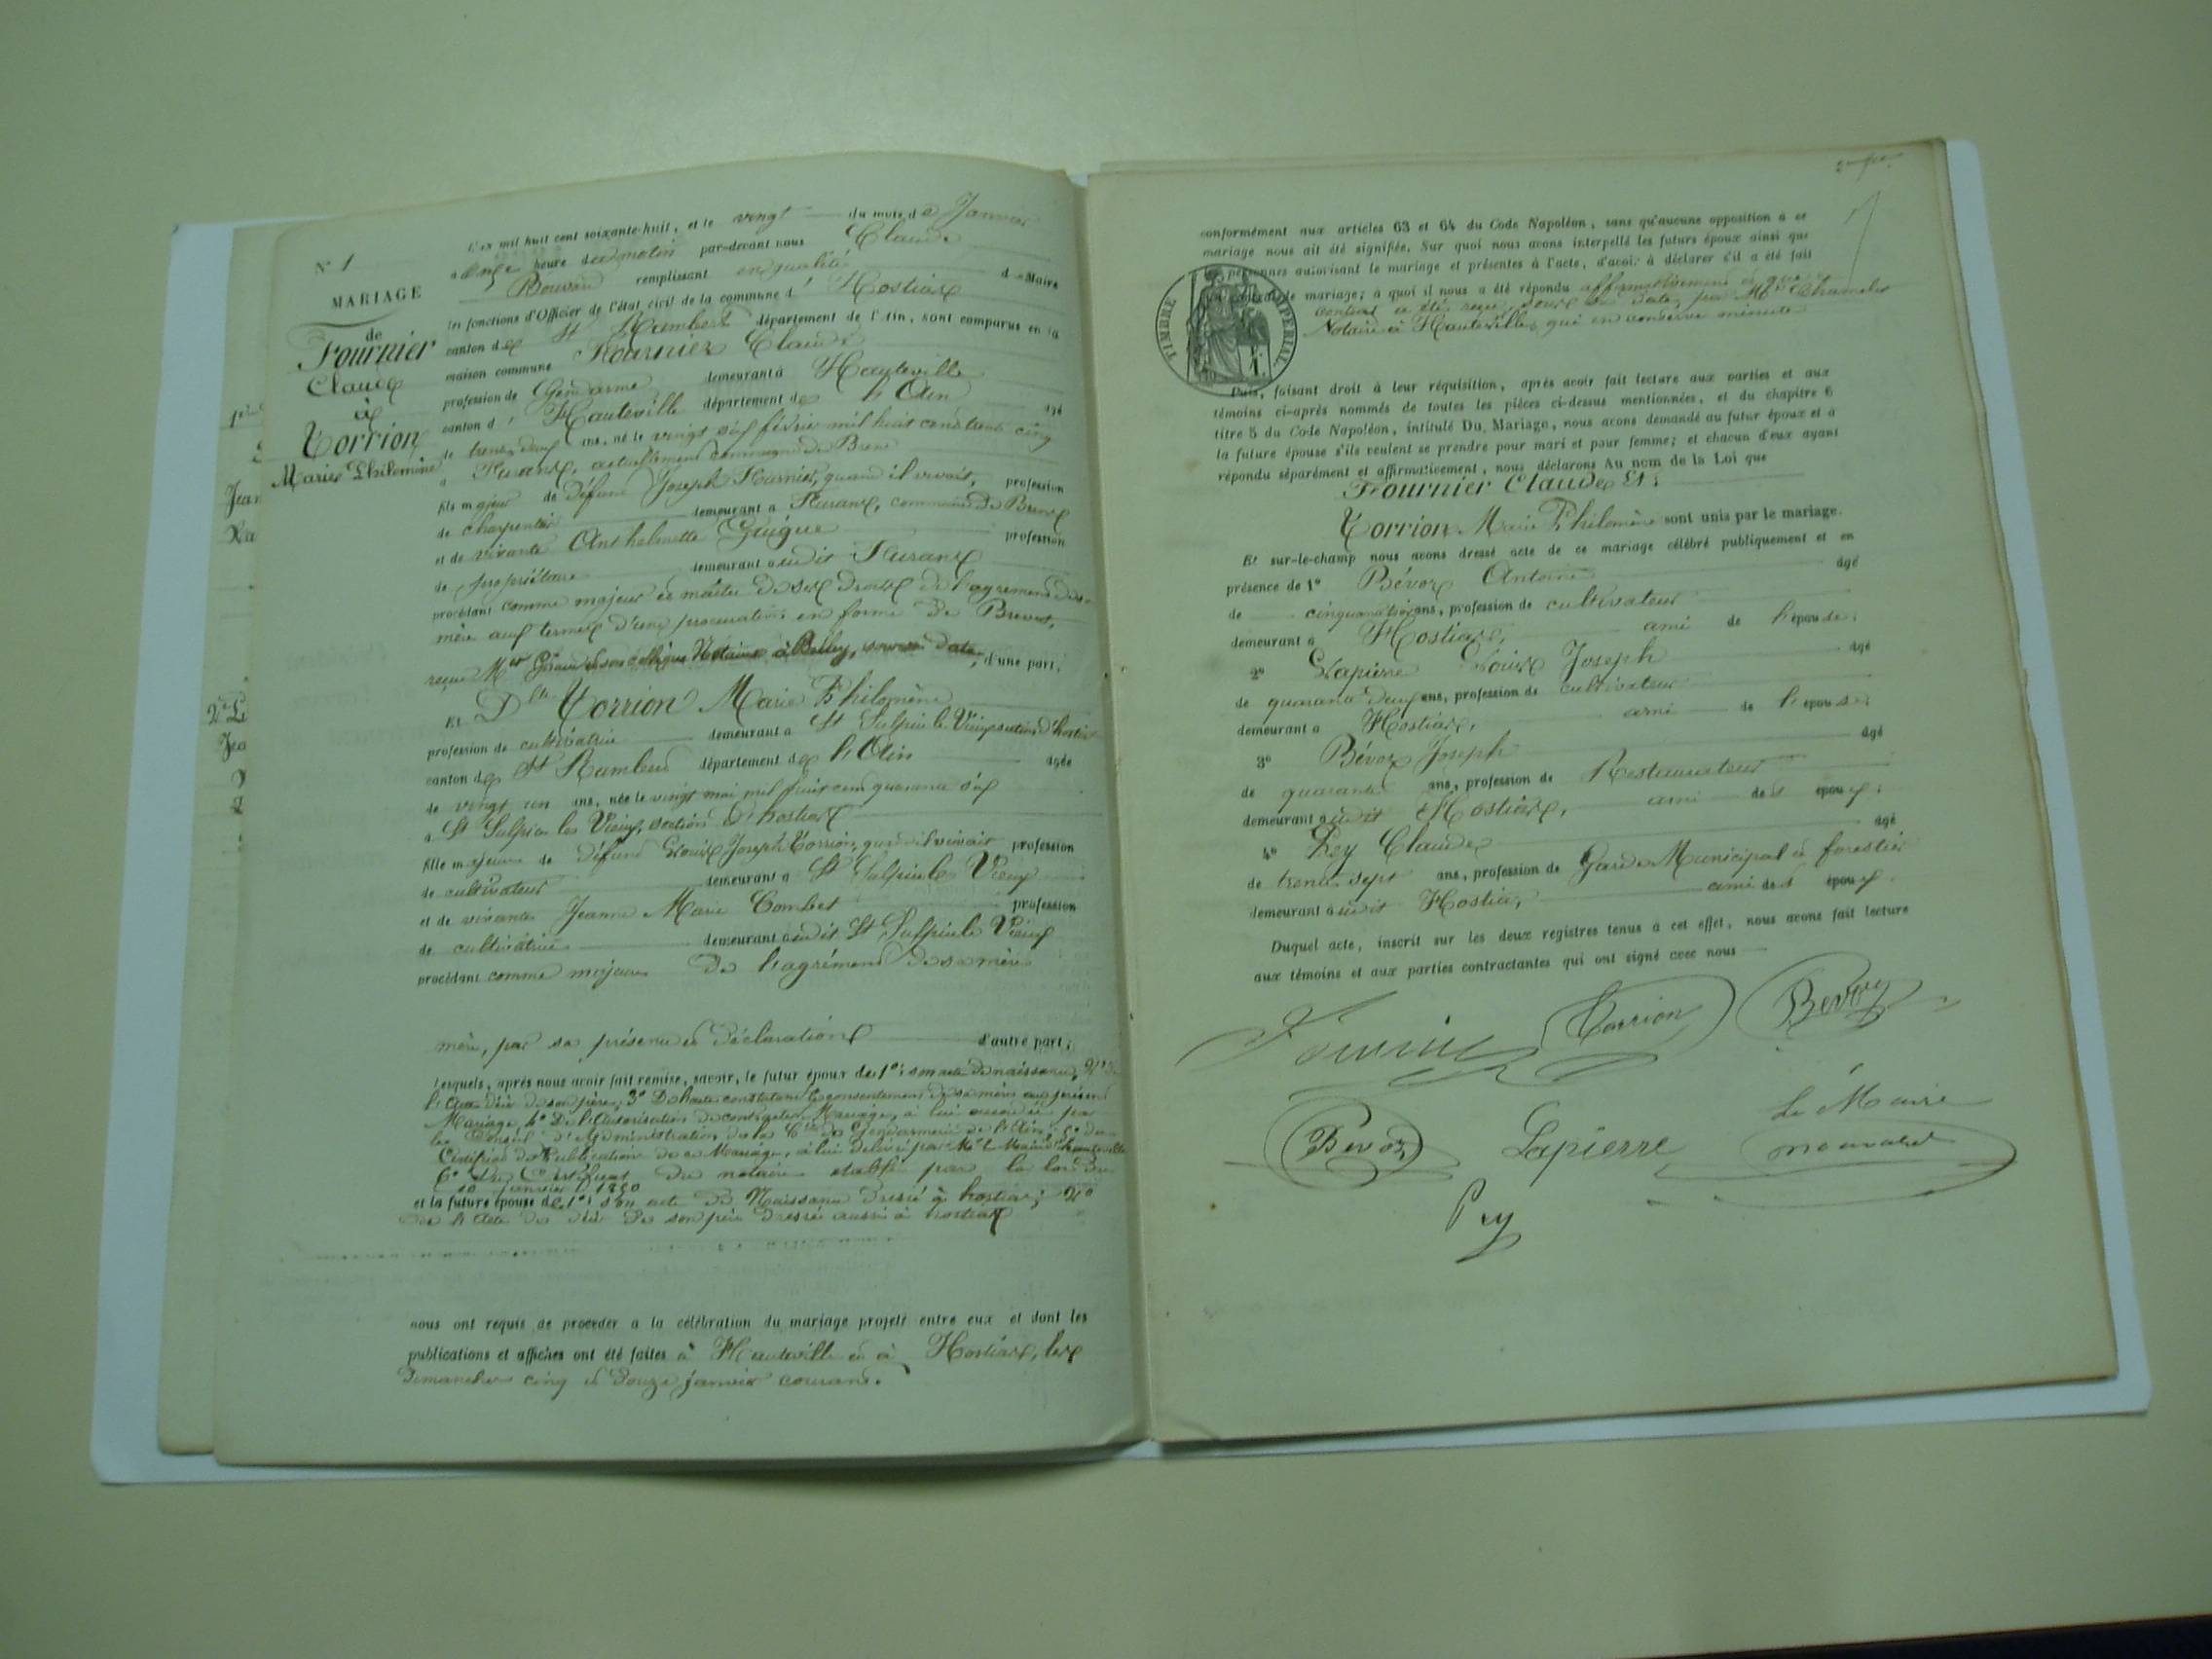 N° 1
MARIAGE
de
Fournier
Claude
et
Torrion
Marie Philomène
L'an mil huit cent soixante-huit, et le vingt du mois de Janvier
à onze heure du matin par-devant nous Claude
remplissant en qualité de Maire
les fonctions d'Officier de l'état civil de la commune d' Hostiax
canton de St Rambert département de l'Ain, sont comparus en la
maison commune Fournier Claude
profession de Gendarme demeurant à Hauteville
canton d' Hauteville département de l'Ain âgé
de trente deux ans, né le vingt six février mil huit cent trente cinq
à actuellement commune de Brens
fils majeur de défunt Joseph Fournier, quand il vivait, profession
de charpentier demeurant à commune de Brens
et de vivante Anthelmette Guigue profession
de propriétaire demeurant audit
procédant comme majeur et maître de ses droits de l'agrément de sa
mère aux termes d'une procuration en forme de Brevet,
reçue Me et son collègue Notaires à Belley, sous sa date, d'une part.
Et Dlle Torrion Marie Philomène
profession de cultivatrice demeurant à St Sulpice le Vieux section d'hostiax
canton de St Rambert département de l'Ain âgée
de vingt un ans, née le vingt mai mil huit cent quarante six
à St Sulpice le Vieux, section d'hostiax
fille majeure de défunt Louis Joseph Torrion, quand il vivait profession
de cultivateur demeurant à St Sulpice le Vieux
et de vivante Jeanne Marie Combet profession
de cultivatrice demeurant audit St Sulpice le Vieux
procédant comme majeure de l'agrément de sa mère
mère, par sa présence et déclaration d'autre part;
Lesquels, après nous avoir fait remise, savoir, le futur époux de 1° son acte de naissance, 2° de
l'acte décès de son père; 3° De l'acte constatant le consentement de sa mère au présent
Mariage 4° De l'autorisation de contracter Mariage, à lui accordée par
le Conseil d'Administration de la Cie de Gendarmerie de l'Ain; 5° du
Certificat de Publication de ce Mariage, à lui délivré par Mr le Maire d'hauteville
6° Du Certificat du notaire établi par la loi du
10 janvier 1850
et la future épouse de 1° son acte de Naissance dressé à hostiax; 2°
de l'acte de décès de son père dressé aussi à hostiax
nous ont requis de procéder à la célébration du mariage projeté entre eux et dont les
publications et affiches ont été faites à Hauteville et à Hostiax, les
Dimanches cinq et douze janvier courant.
conformément aux articles 63 et 64 du Code Napoléon, sans qu'aucune opposition à ce
mariage nous ait été signifiée. Sur quoi nous avons interpellé les futurs époux ainsi que
les personnes autorisant le mariage et présentes à l'acte, d'avoir à déclarer s'il a été fait
un contrat de mariage; à quoi il nous a été répondu affirmativement et que
contrat a été reçu, sous sa date, par Me Chamelet
Notaire à Hauteville, qui en conserve minute
TIMBRE IMPERIAL
Puis, faisant droit à leur réquisition, après avoir fait lecture aux parties et aux
témoins ci-après nommés de toutes les pièces ci-dessus mentionnées, et du chapitre 6
titre 5 du Code Napoléon, intitulé Du Mariage, nous avons demandé au futur époux et à
la future épouse s'ils veulent se prendre pour mari et pour femme; et chacun d'eux ayant
répondu séparément et affirmativement, nous déclarons Au nom de la Loi que
Fournier Claude Et
Torrion Marie Philomène sont unis par le mariage.
Et sur-le-champ nous avons dressé acte de ce mariage célébré publiquement et en
présence de 1° Bévoz Antoine âgé
de cinquante ans, profession de cultivateur
demeurant à Hostiax, ami de l'épouse;
2° Lapierre Louis Joseph âgé
de quarante deux ans, profession de cultivateur
demeurant à Hostiax, ami de l'épouse;
3° Bévoz Joseph âgé
de quarante ans, profession de Restaurateur
demeurant audit Hostiax, ami des époux;
4° Pey Claude âgé
de trente sept ans, profession de Garde Municipal et forestier
demeurant audit Hostiax, ami des époux.
Duquel acte, inscrit sur les deux registres tenus à cet effet, nous avons fait lecture
aux témoins et aux parties contractantes qui ont signé avec nous
Fournier Torrion Bevoz
Bevoz Lapierre Le Maire
Pey